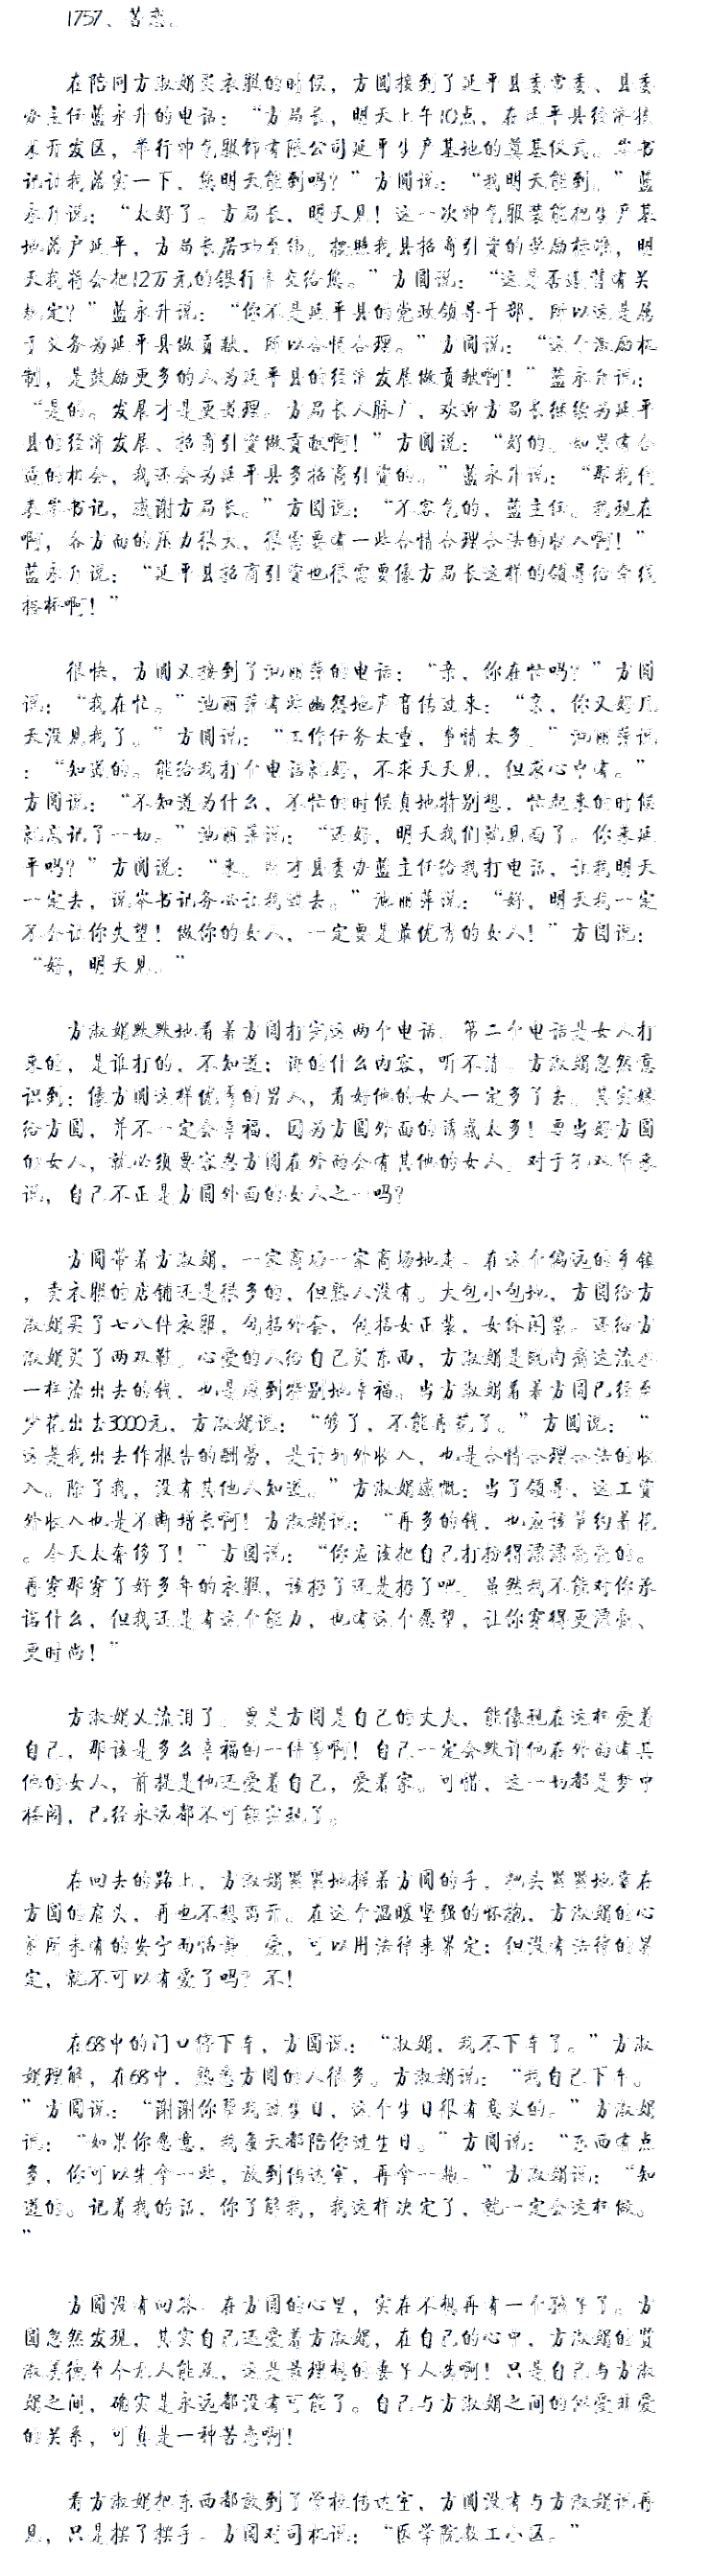 1757、苦恋。
在陪同方淑娟买衣服的时候，方圆接到了延平县委常委、县委
办主任蓝永升的电话：“方局长，明天上午10点，在延平县经济技
术开发区，举行帅气服饰有限公司延平生产基地的奠基仪式。岑书
记让我落实一下，您明天能到吗？”方圆说：“我明天能到。”蓝
永升说：“太好了。方局长，明天见！这一次帅气服装能把生产基
地落户延平，方局长居功至伟。按照我县招商引资的奖励标准，明
天我将会把12万元的银行卡交给您。”方圆说：“这是否违背有关
规定？”蓝永升说：“你不是延平县的党政领导干部，所以这是属
于义务为延平县做贡献，所以合情合理。”方圆说：“这个激励机
制，是鼓励更多的人为延平县的经济发展做贡献啊！”蓝永升说：
“是的。发展才是更道理。方局长人脉广，欢迎方局长继续为延平
县的经济发展、招商引资做贡献啊！”方圆说：“好的。如果有合
适的机会，我还会为延平县多招商引资的。”蓝永升说：“那我代
表岑书记，感谢方局长。”方圆说：“不客气的，蓝主任。我现在
啊，各方面的压力很大，很需要有一些合情合理合法的收入啊！”
蓝永升说：“延平县招商引资也很需要像方局长这样的领导给牵线
搭桥啊！”
很快，方圆又接到了池丽萍的电话：“亲，你在忙吗？”方圆
说：“我在忙。”池丽萍有些幽怨地声音传过来：“亲，你又好几
天没见我了。”方圆说：“工作任务太重，事情太多。”池丽萍说
：“知道的。能给我打个电话就好，不求天天见，但求心中有。”
方圆说：“不知道为什么，不忙的时候真地特别想，忙起来的时候
就忘记了一切。”池丽萍说：“还好，明天我们就见面了。你来延
平吗？”方圆说：“来。刚才县委办蓝主任给我打电话，让我明天
一定去，说岑书记务必让我过去。”池丽萍说：“好，明天我一定
不会让你失望！做你的女人，一定要是最优秀的女人！”方圆说：
“好，明天见。”
方淑娟默默地看着方圆打完这两个电话。第二个电话是女人打
来的，是谁打的，不知道；讲的什么内容，听不清。方淑娟忽然意
识到：像方圆这样优秀的男人，看好他的女人一定多了去。其实嫁
给方圆，并不一定会幸福，因为方圆外面的诱惑太多！要当好方圆
的女人，就必须要容忍方圆在外面会有其他的女人。对于邹双华来
说，自己不正是方圆外面的女人之一吗？
方圆带着方淑娟，一家商场一家商场地走。在这个偏远的乡镇
，卖衣服的店铺还是很多的，但熟人没有。大包小包地，方圆给方
淑娟买了七八件衣服，包括外套，包括女正装，女休闲装。还给方
淑娟买了两双鞋。心爱的人给自己买东西，方淑娟是既向着这流水
一样流出去的钱，也是感到特别地幸福。当方淑娟看着方圆已经至
少花出去3000元，方淑娟说：“够了，不能再花了。”方圆说：“
这是我出去作报告的酬劳，是计划外收入，也是合情合理合法的收
入。除了我，没有其他人知道。”方淑娟感慨：当了领导，这工资
外收入也是不断增长啊！方淑娟说：“再多的钱，也应该节约着花
。今天太奢侈了！”方圆说：“你应该把自己打扮得漂漂亮亮的。
再穿那穿了好多年的衣服，该扔了还是扔了吧。虽然我不能对你承
诺什么，但我还是有这个能力，也有这个愿望，让你穿得更漂亮、
更时尚！”
方淑娟又流泪了。要是方圆是自己的丈夫，能像现在这样爱着
自己，那该是多么幸福的一件事啊！自己一定会默许他在外面有其
他的女人，前提是他还爱着自己，爱着家。可惜，这一切都是梦中
楼阁，已经永远都不可能实现了。
在回去的路上，方淑娟紧紧地握着方圆的手，把头紧紧地靠在
方圆的肩头，再也不想离开。在这个温暖坚强的怀抱，方淑娟的心
前所未有的安宁而恬静。爱，可以用法律来界定；但没有法律的界
定，就不可以有爱了吗？不！
在68中的门口停下车，方圆说：“淑娟，我不下车了。”方淑
娟理解，在68中，熟悉方圆的人很多。方淑娟说：“我自己下车。
”方圆说：“谢谢你帮我过生日，这个生日很有意义的。”方淑娟
说：“如果你愿意，我每天都陪你过生日。”方圆说：“东西有点
多，你可以先拿一些，放到传达室，再拿一趟。”方淑娟说：“知
道的。记着我的话，你了解我，我这样决定了，就一定会这样做。
”
方圆没有回答。在方圆的心里，实在不想再有一个孩子了。方
圆忽然发现，其实自己还爱着方淑娟，在自己的心中，方淑娟的贤
淑美德至今无人能及，这是最理想的妻子人选啊！只是自己与方淑
娟之间，确实是永远都没有可能了。自己与方淑娟之间的似爱非爱
的关系，可真是一种苦恋啊！
看方淑娟把东西都放到了学校传达室，方圆没有与方淑娟说再
见，只是摆了摆手。方圆对司机说：“医学院教工小区。”